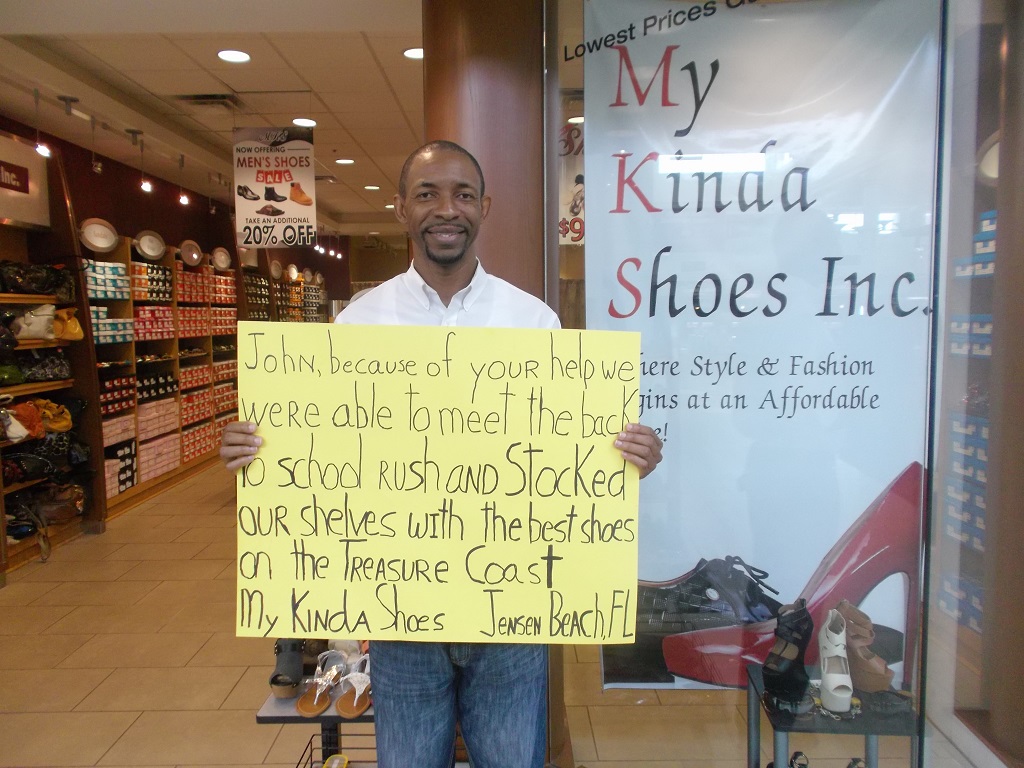 Lowest Prices
My
Kinda
Shoes Inc.
here Style & Fashion
gins at an Affordable
e!
NOW OFFERING
MEN'S SHOES
SALE
TAKE AN ADDITIONAL
20% OFF
Inc.
$9
John, because of your help we
were able to meet the back
to school RUSH AND Stocked
OUR shelves with the best shoes
on the TREASURE Coast
My KINDA Shoes JENSEN BEACH, FL